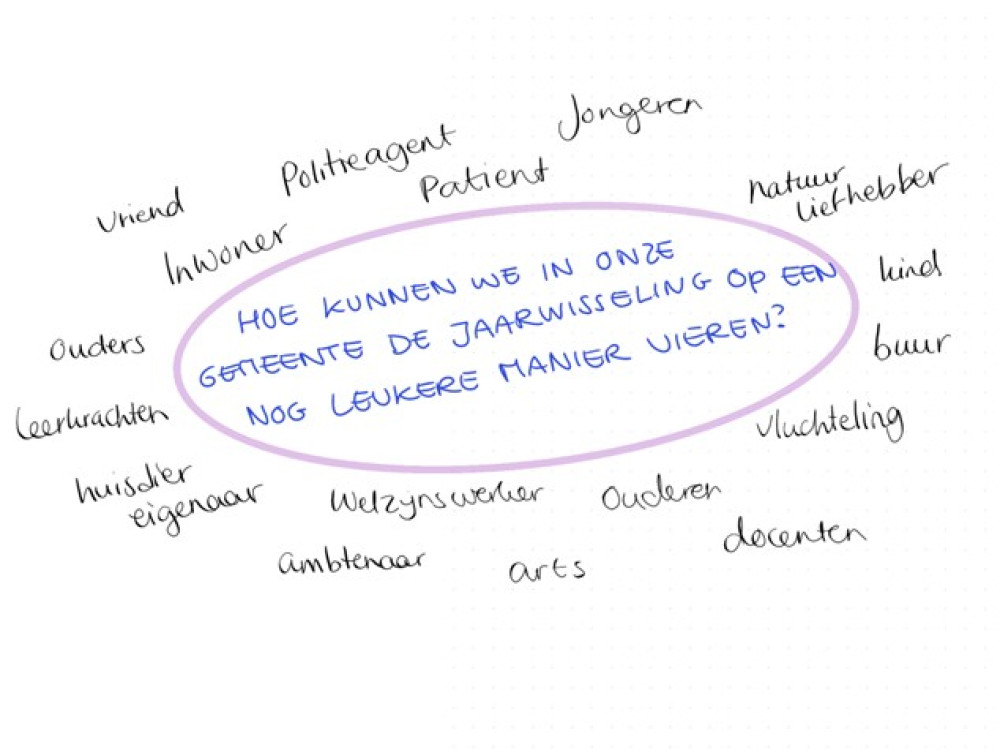 Jongeren
Politieagent
Patient
natuur
liefhebber
vriend
Inwoner
HOE KUNNEN WE IN ONZE
GEMEENTE DE JAARWISSELING OP EEN
NOG LEUKERE MANIER VIEREN?
kind
Ouders
buur
leerkrachten
vluchteling
huisdier
eigenaar
Welzijnswerker
Ouderen
docenten
ambtenaar
arts